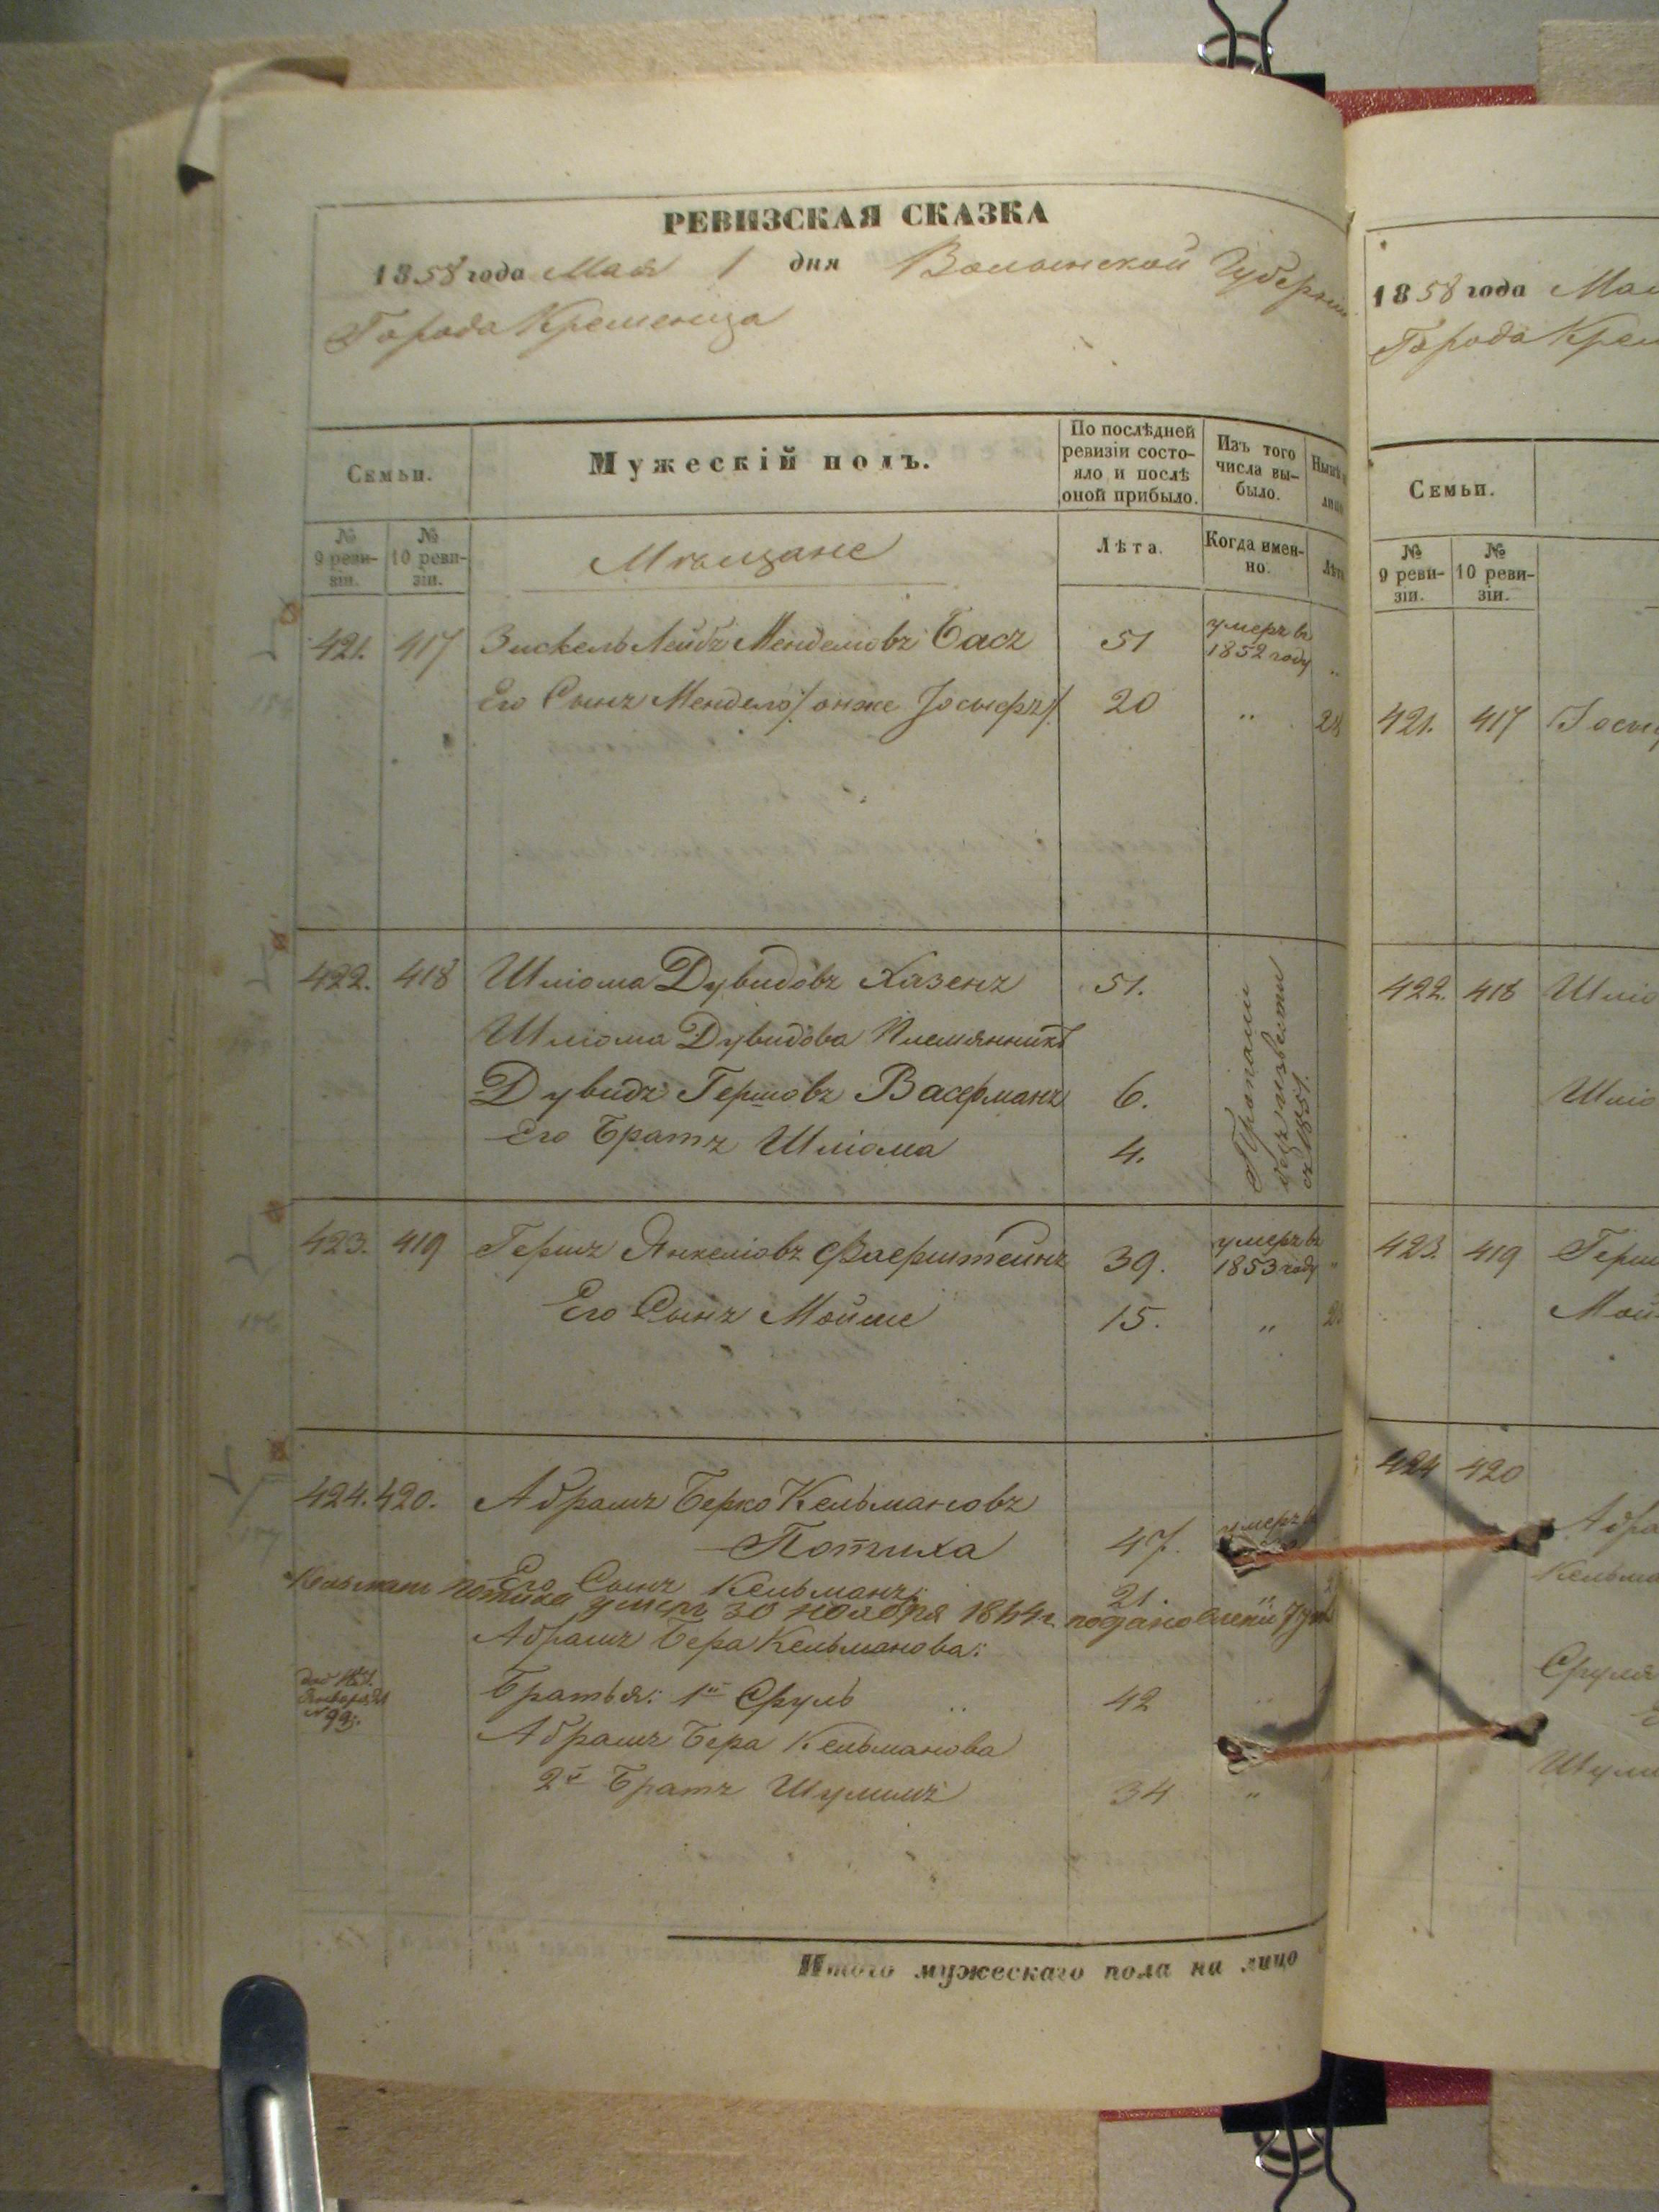 РЕВИЗСКАЯ СКАЗКА
1858 года Мая 1 дня Волынской Губерніи
Города Кременца
Семьи.
Мужескій полъ.
По послѣдней ревизіи состо-
яло и послѣ оной прибыло.
Изъ того числа вы-
было.
№ 9 реви-
зіи.
№ 10 реви-
зіи.
Мѣщане
Лѣта.
Когда имен-
но.
421. 417 Зискель Лейбъ Менделіовъ Басъ 51 умеръ въ 1852 году
Его Сынъ Мендель /онже Іосыфъ/ 20 " 28
422. 418 Шліома Дувидовъ Хазенъ 51.
Шліома Дувидова Племянникъ
Дувидъ Гершовъ Васерманъ 6.
Его Братъ Шліома 4.
Пропали безъ извѣсти съ 1851.
423. 419 Гершъ Янкеліовъ Фаерштейнъ 39. умеръ въ 1853 году "
Его Сынъ Мойше 15. "
424. 420. Абрамъ Берко Кельмановъ
Потиха 47. умеръ в
Его Сынъ Кельманъ 21. "
Кельман Потиха умер 30 ноября 1844 г.
Абрамъ Бера Кельманова:
Братья: 1й Сруль 42 "
Абрамъ Бера Кельманова
2й Братъ Шулимъ 34 "
Итого мужескаго пола на лицо
1858 года Мая
Города Крем
Семьи.
№ 9 реви-
зіи.
№ 10 реви-
зіи.
421. 417
422. 418 Шліо
Шліо
423. 419 Герш
Мой
424 420
Абра
Кельма
Сруля
Шули